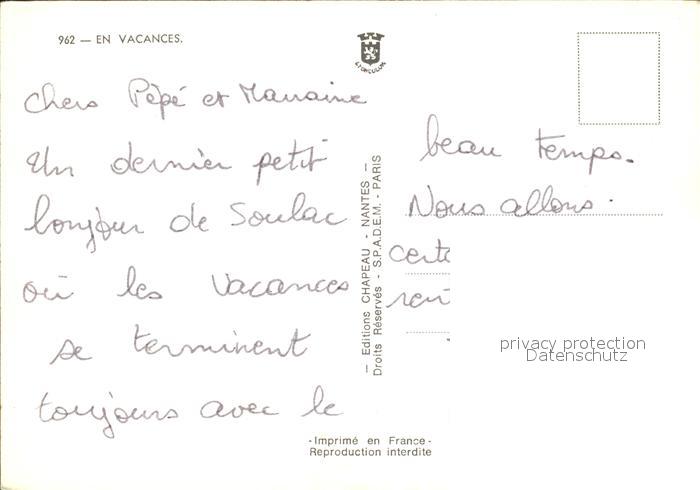 962 — EN VACANCES.
LYONCOLOR
Chers Pépé et Marraine
Un dernier petit
bonjour de Soulac
où les vacances
se terminent
toujours avec le
— Editions CHAPEAU - NANTES —
Droits Réservés - S.P.A.D.E.M. - PARIS
beau temps.
Nous allons
privacy protection
Datenschutz
-Imprimé en France-
Reproduction interdite